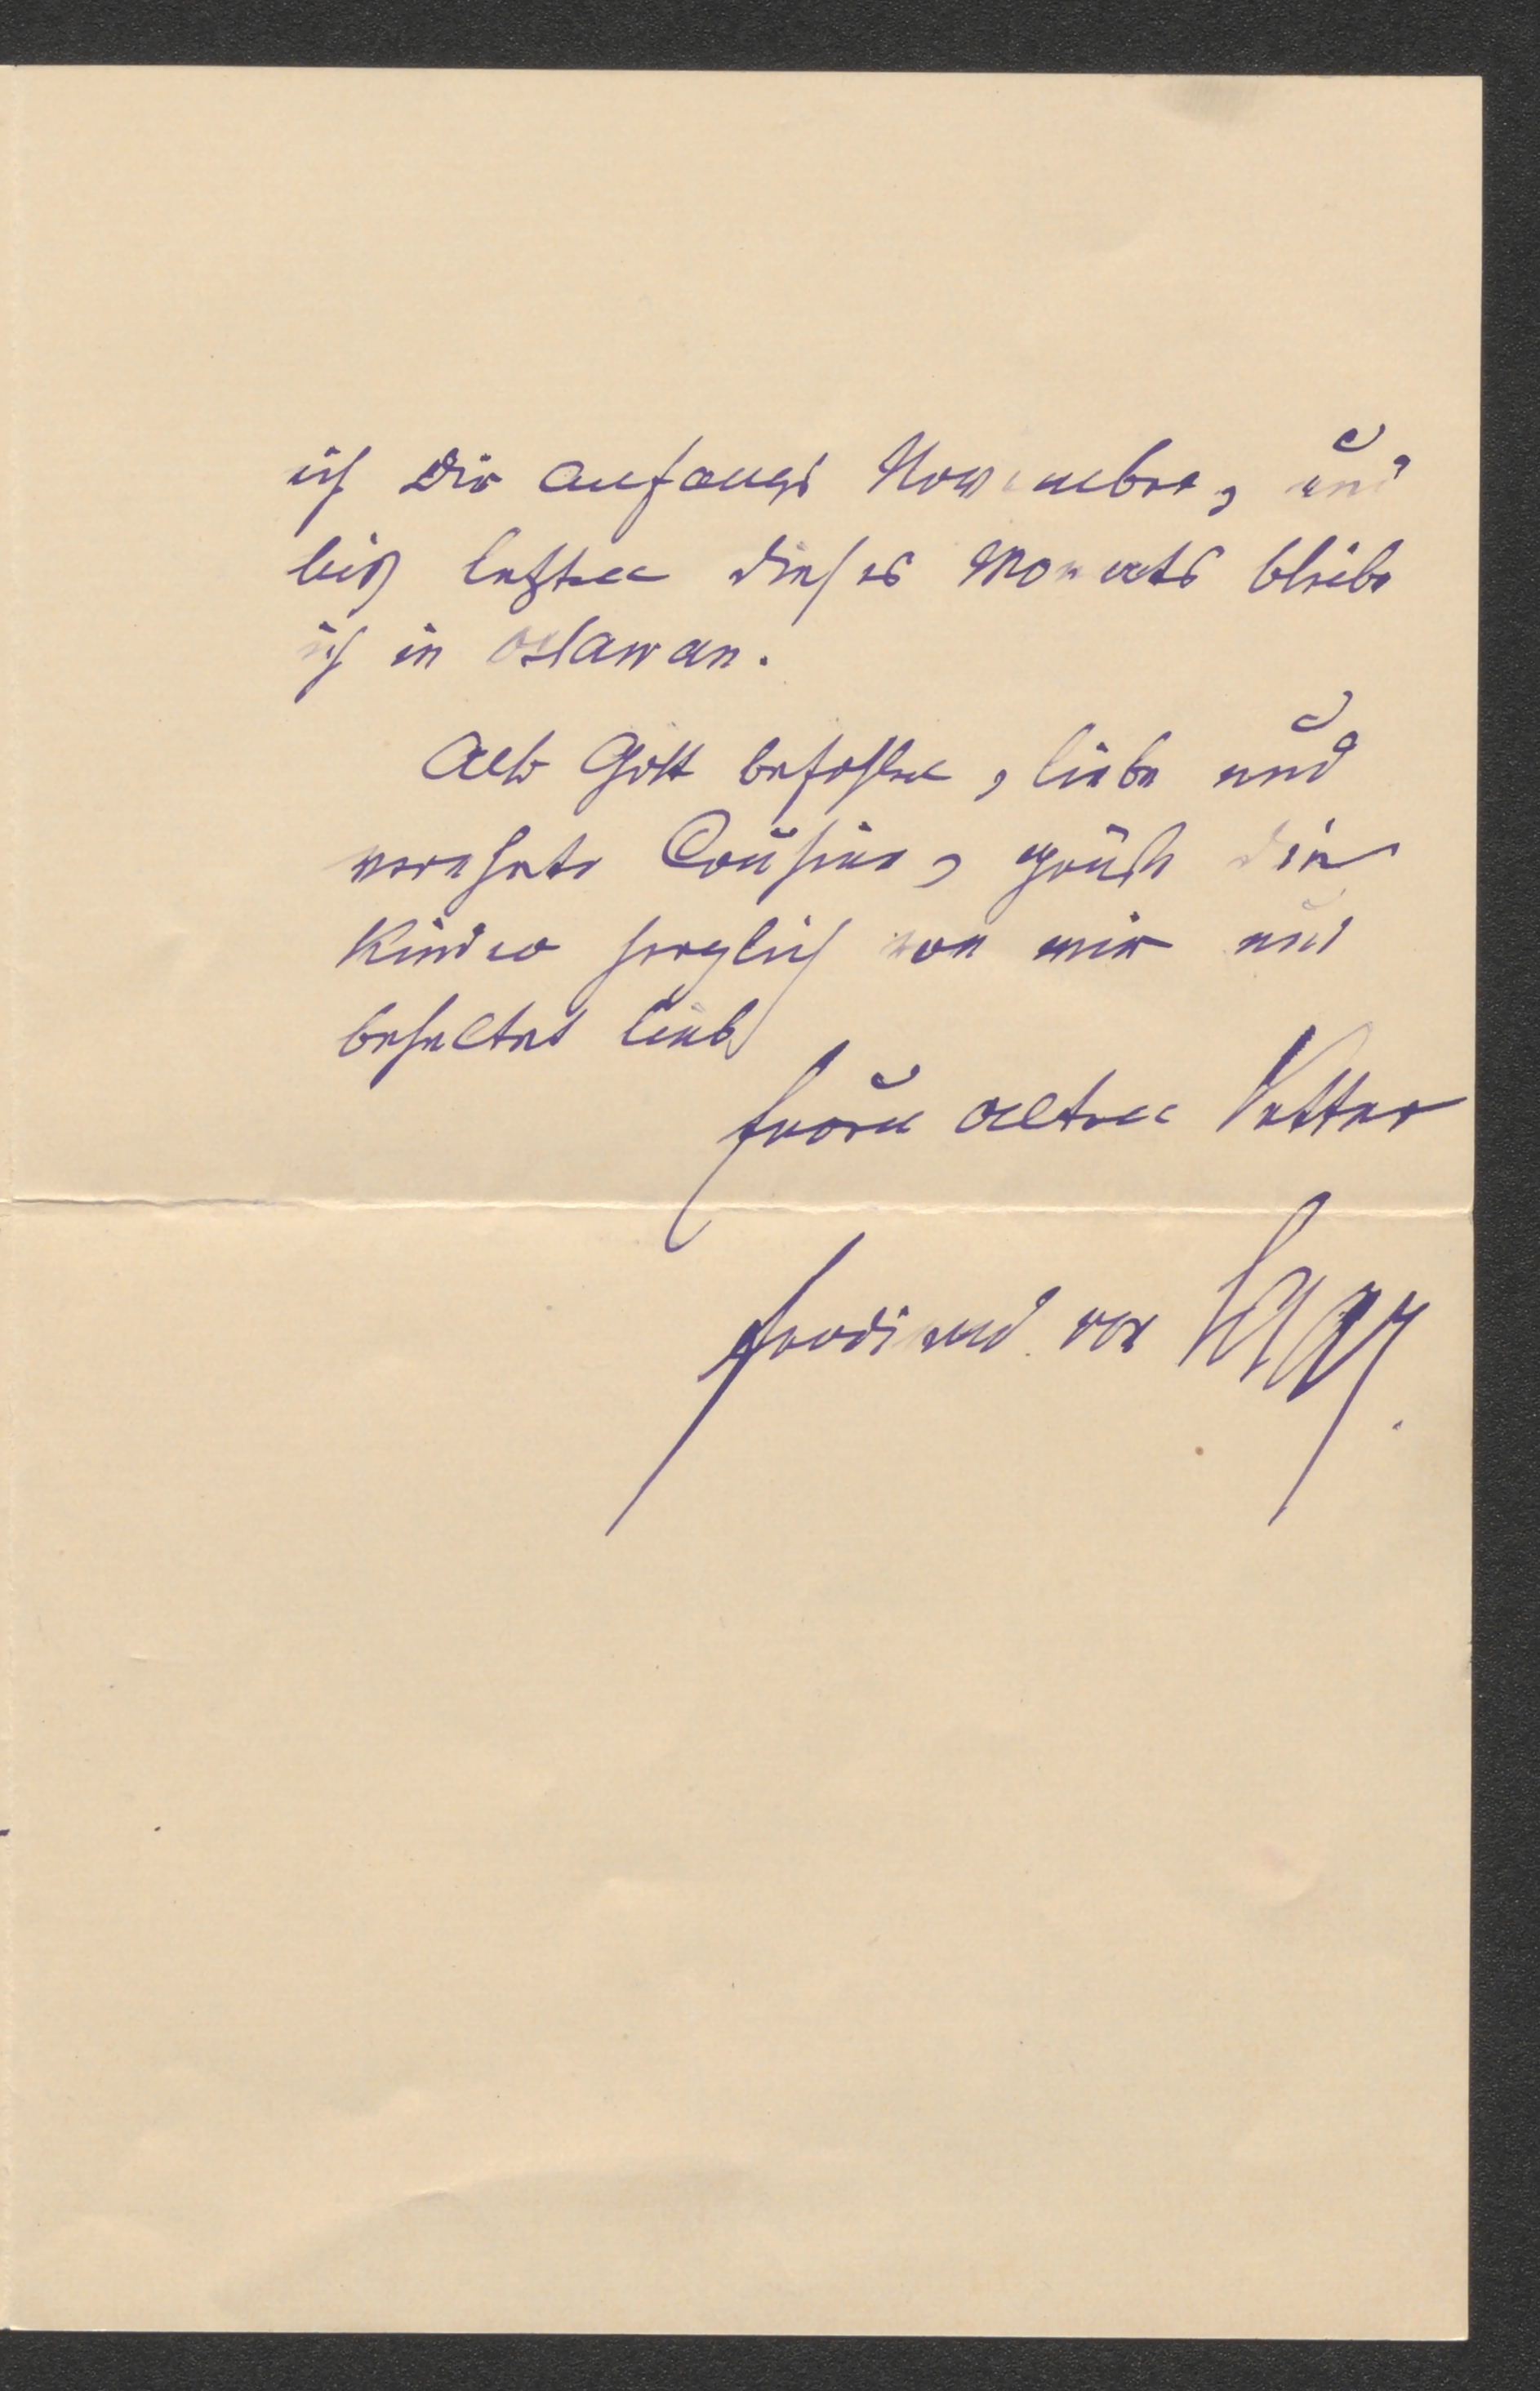 ich Dir anfangs November, und
bis letzten dieses Monats bleibe
ich in Oslawan.
Also Gott befohlen, liebe und
verehrte Cousine, grüße die
Kinder herzlich von mir und
behaltet lieb
Euren alten Vetter
Ferdinand von Saar.